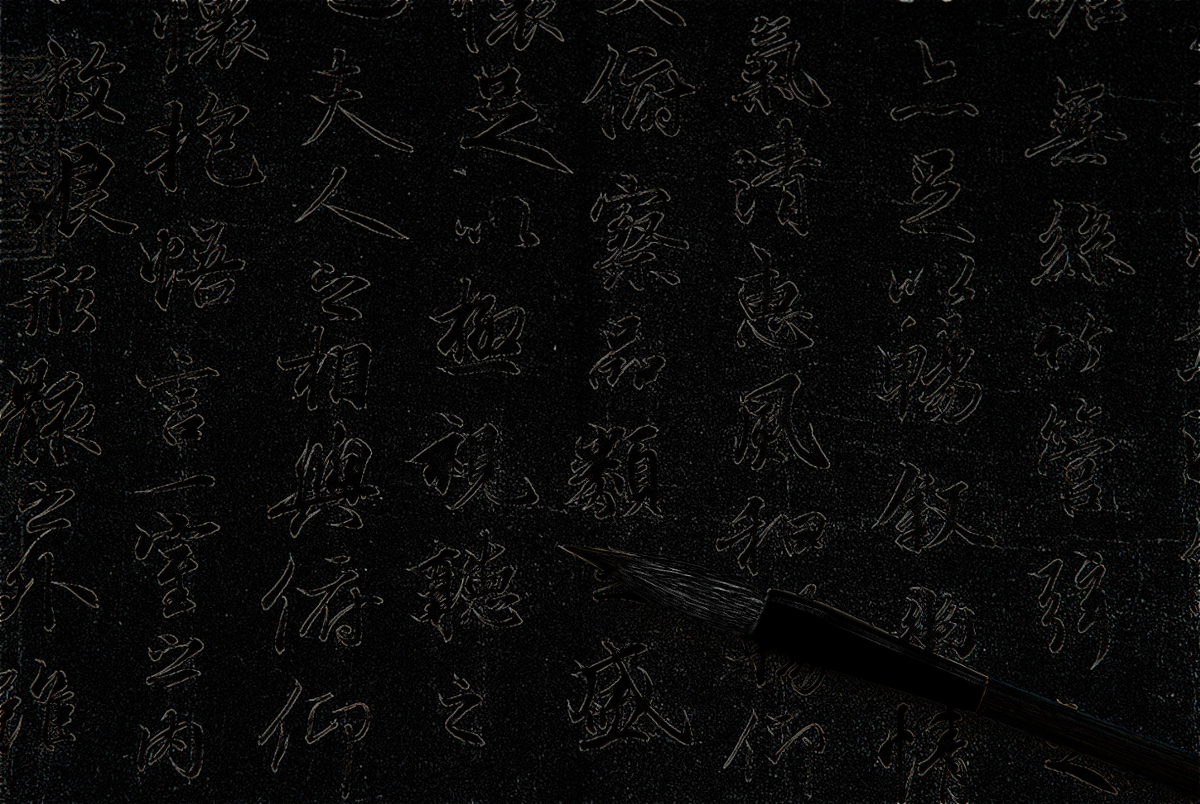 無絲竹管弦之
亦足以暢敘幽情
氣清惠風和暢仰
大俯察品類之盛
懷足以極視聽之
也夫人之相與俯仰
懷抱悟言一室之內
放浪形骸之外雖